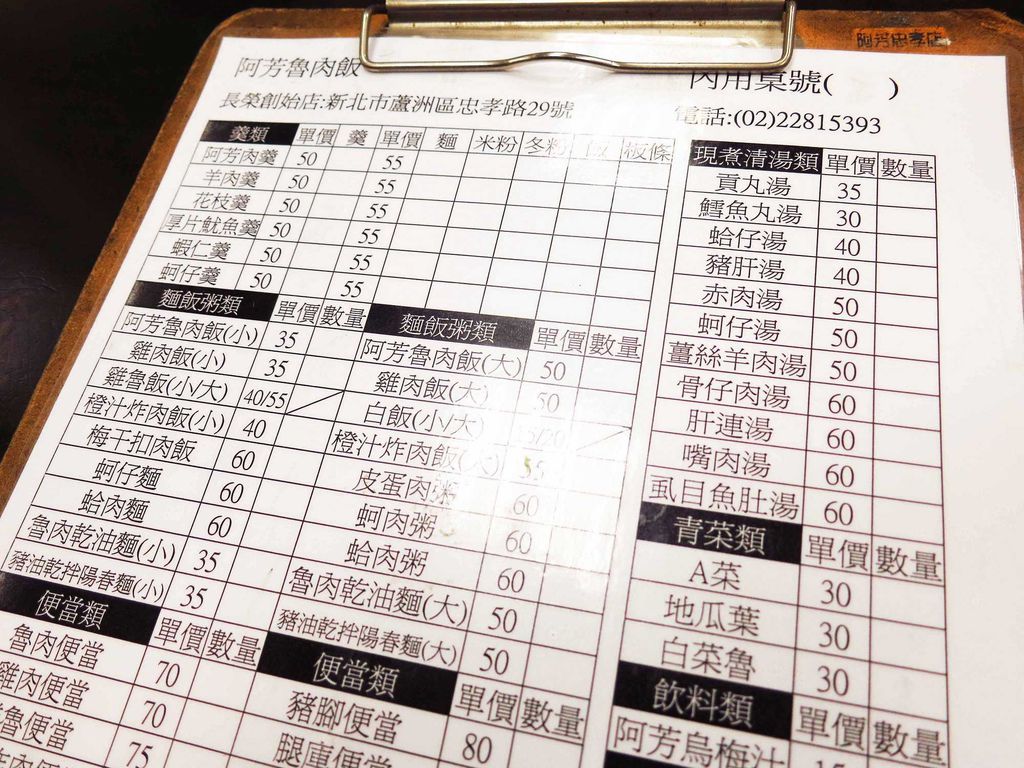 阿芳忠孝店
阿芳魯肉飯 內用桌號( )
長榮創始店:新北市蘆洲區忠孝路29號 電話:(02)22815393
羹類 單價 羹 單價 麵 米粉 冬粉 板條
阿芳肉羹 50 55
羊肉羹 50 55
花枝羹 50 55
厚片魷魚羹 50 55
蝦仁羹 50 55
蚵仔羹 50 55
麵飯粥類 單價 數量
阿芳魯肉飯(小) 35
雞肉飯(小) 35
雞魯飯(小/大) 40/55
橙汁炸肉飯(小) 40
梅干扣肉飯 60
蚵仔麵 60
蛤肉麵 60
魯肉乾油麵(小) 35
豬油乾拌陽春麵(小) 35
便當類 單價 數量
魯肉便當 70
雞肉便當 70
魯便當 75
麵飯粥類 單價 數量
阿芳魯肉飯(大) 50
雞肉飯(大) 50
白飯(小/大) 15/20
橙汁炸肉飯(大) 55
皮蛋肉粥 60
蚵肉粥 60
蛤肉粥 60
魯肉乾油麵(大) 50
豬油乾拌陽春麵(大) 50
便當類 單價 數量
豬腳便當 80
腿庫便當
現煮清湯類 單價 數量
貢丸湯 35
鱈魚丸湯 30
蛤仔湯 40
豬肝湯 40
赤肉湯 50
蚵仔湯 50
薑絲羊肉湯 50
骨仔肉湯 60
肝連湯 60
嘴肉湯 60
虱目魚肚湯 60
青菜類 單價 數量
A菜 30
地瓜葉 30
白菜魯 30
飲料類 單價 數量
阿芳烏梅汁